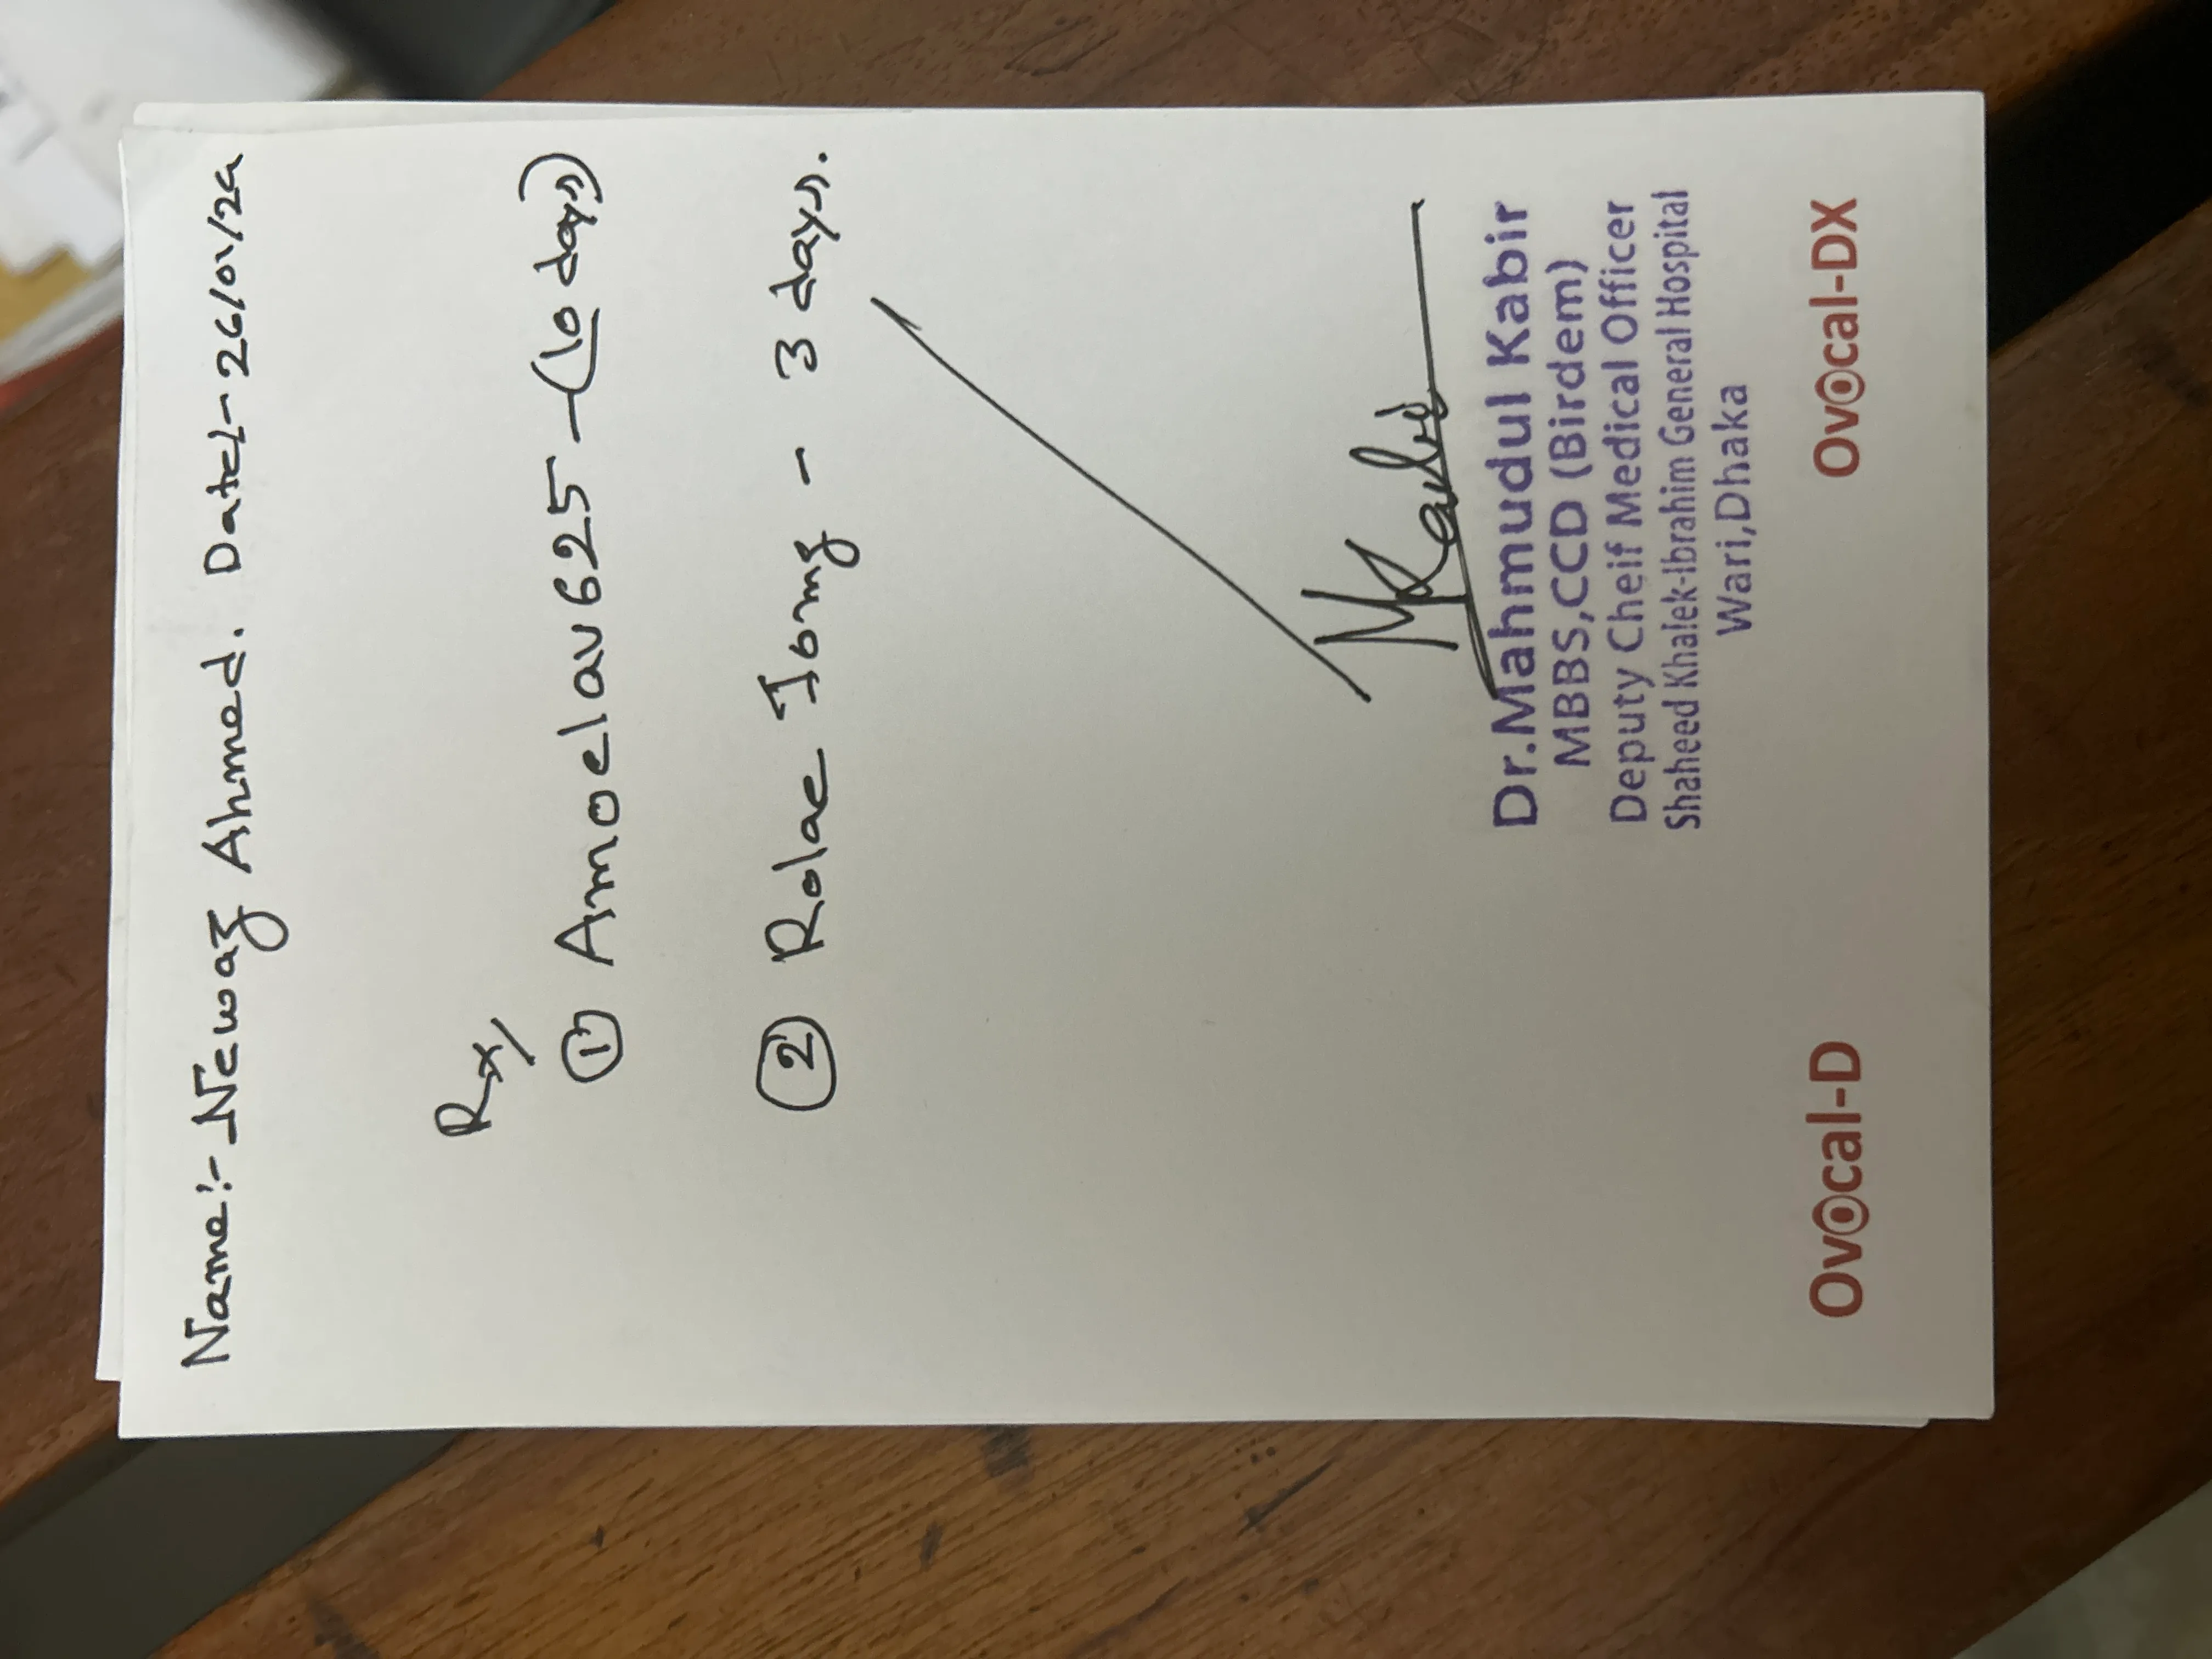 Name:- Newaz Ahmed. Date:- 26/01/24
Rx/
① Amoclav 625 - (10 days)
② Rolac 10mg - 3 days.
MKabir
Dr.Mahmudul Kabir
MBBS,CCD (Birdem)
Deputy Cheif Medical Officer
Shaheed Khalek-Ibrahim General Hospital
Wari,Dhaka
Ovocal-D Ovocal-DX